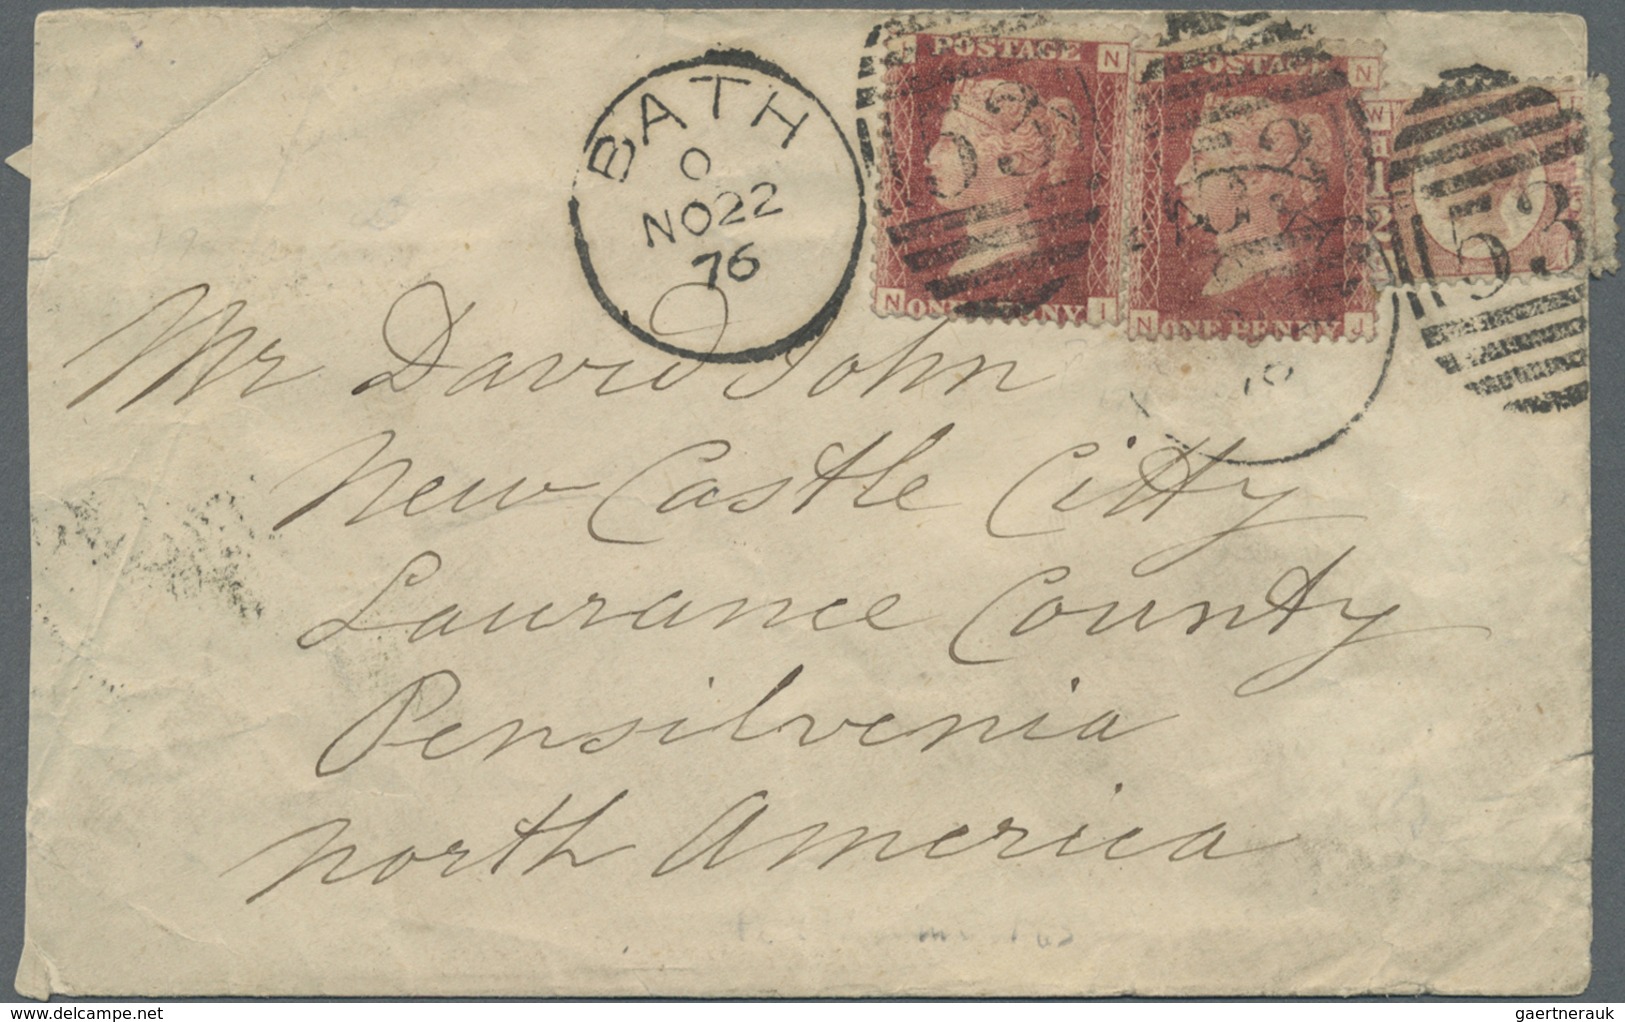 BATH
O
NO22
76
POSTAGE
N
ONE PENNY
N I
POSTAGE
N
ONE PENNY
N J
53
53
W
Mr David John
New Castle Citty
Laurance County
Pensilvenia
North America
delcampe.net
gaertnerauk